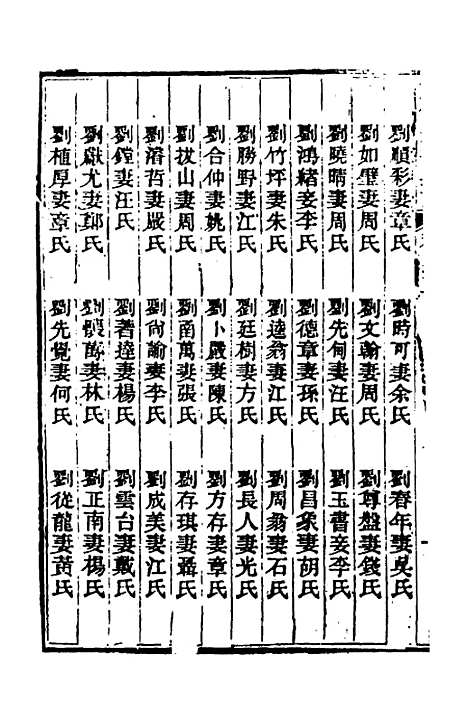 劉順彩妻章氏
劉時可妻余氏
劉春年妻吳氏
劉如璧妻周氏
劉文翰妻周氏
劉尊盤妻錢氏
劉曉晴妻周氏
劉先甸妻汪氏
劉玉書妾李氏
劉鴻緒妾李氏
劉德章妻孫氏
劉昌彖妻胡氏
劉竹坪妻朱氏
劉逵翁妻江氏
劉周翁妻石氏
劉勝野妻江氏
劉廷樹妻方氏
劉長人妻光氏
劉合仲妻姚氏
劉卜嚴妻陳氏
劉方存妻章氏
劉拔山妻周氏
劉南萬妻張氏
劉存琪妻聶氏
劉濬哲妻嚴氏
劉尙諭妻李氏
劉成美妻江氏
劉鏜妻汪氏
劉著達妻楊氏
劉雲台妻戴氏
劉獻尤妻鄭氏
劉懷萬妻林氏
劉正南妻楊氏
劉植厚妻章氏
劉先覺妻何氏
劉從龍妻黃氏